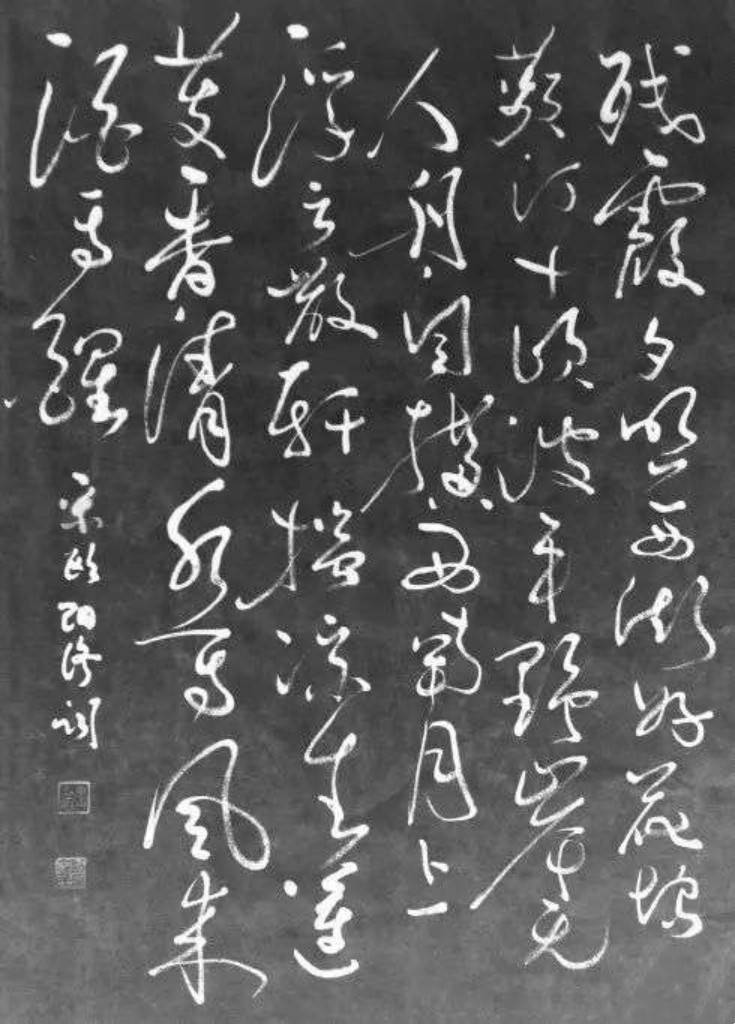 残霞夕照西湖好花坞
蘋汀十顷波平野岸无
人舟自横西南月上
浮云散轩槛凉生莲
芰香清水面风来
酒面醒
宋欧阳修词